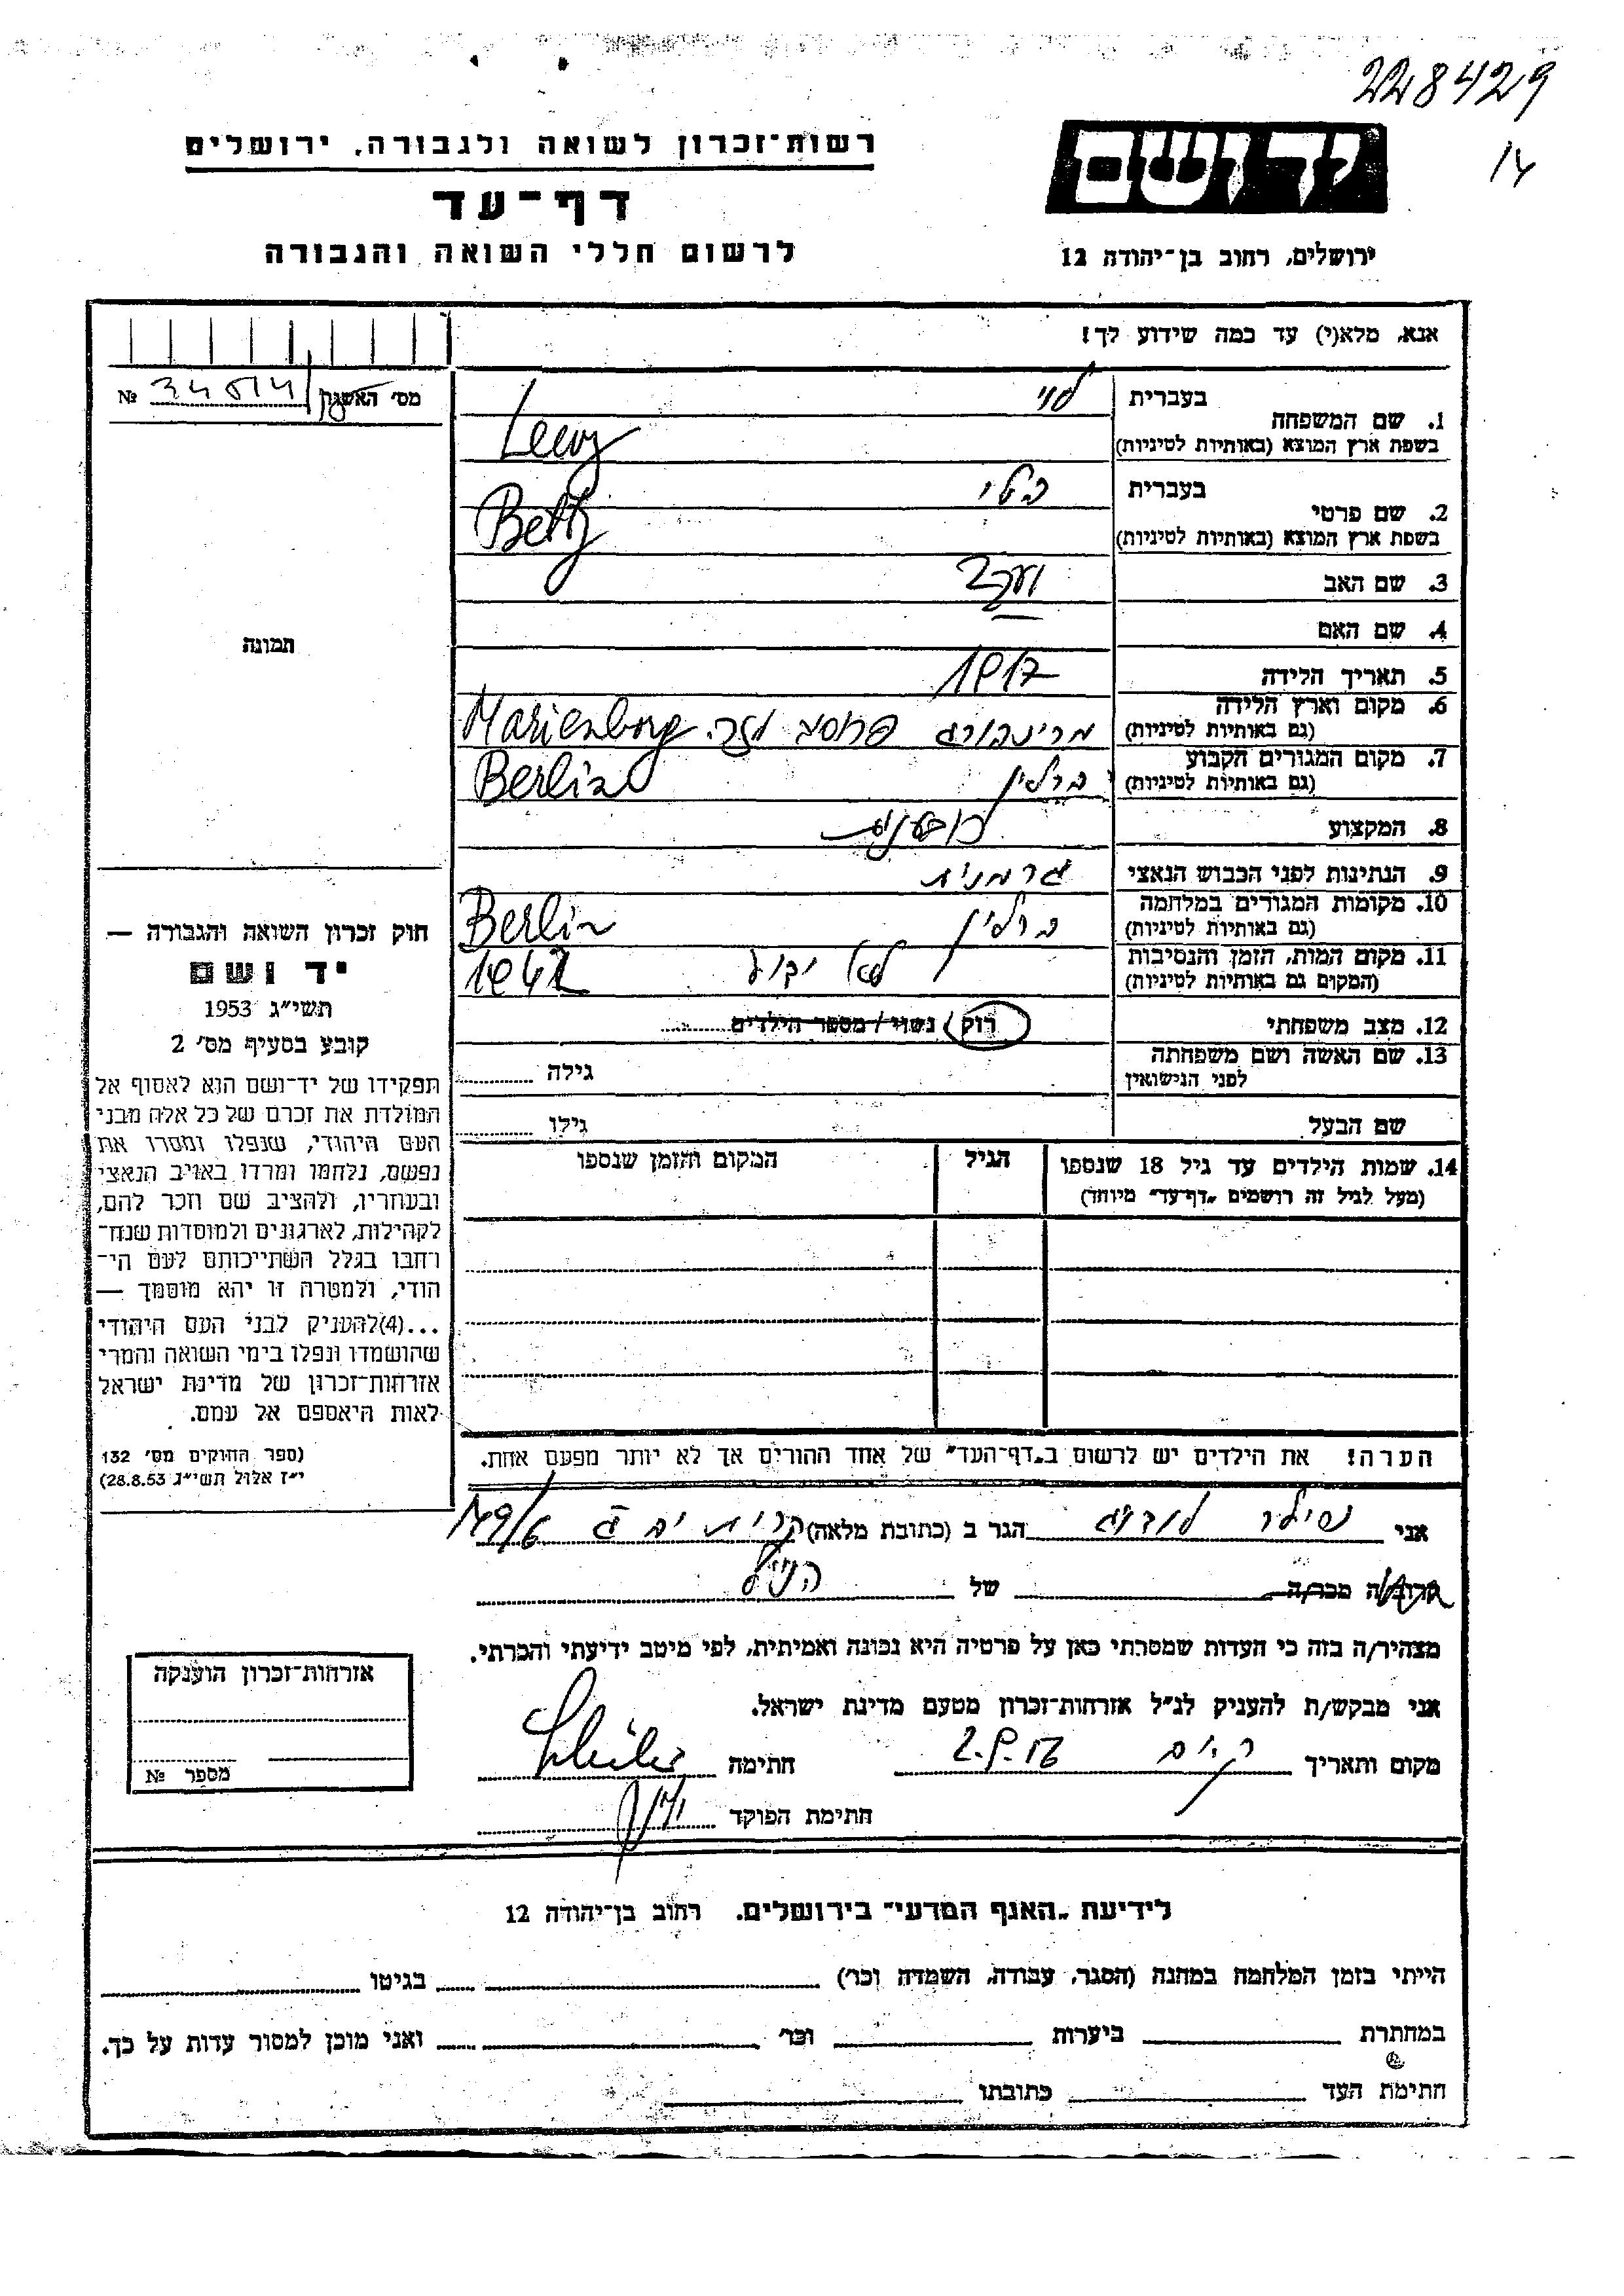 228429
14
יד ושם
ירושלים, רחוב בן־יהודה 12
רשות־זכרון לשואה ולגבורה, ירושלים
דף־עד
לרשום חללי השואה והגבורה
אנא, מלא(י) עד כמה שידוע לך!
מס׳
№
1. שם המשפחה
בעברית
לוי
בשפת ארץ המוצא (באותיות לטיניות)
Levy
2. שם פרטי
בעברית
בטי
בשפת ארץ המוצא (באותיות לטיניות)
Betty
3. שם האב
4. שם האם
5. תאריך הלידה
1917
6. מקום וארץ הלידה
(גם באותיות לטיניות)
מרינבורג
Marienborg
7. מקום המגורים הקבוע
(גם באותיות לטיניות)
ברלין
Berlin
8. המקצוע
9. הנתינות לפני הכבוש הנאצי
גרמנית
10. מקומות המגורים במלחמה
(גם באותיות לטיניות)
ברלין
Berlin
11. מקום המות, הזמן והנסיבות
(המקום גם באותיות לטיניות)
לא ידוע
1942
12. מצב משפחתי
רוק / נשוי / מספר הילדים
13. שם האשה ושם משפחתה
לפני הנישואין
גילה
שם הבעל
גילו
14. שמות הילדים עד גיל 18 שנספו
(מעל לגיל זה רושמים „דף־עד” מיוחד)
הגיל
המקום והזמן שנספו
הערה! את הילדים יש לרשום ב„דף־העד” של אחד ההורים אך לא יותר מפעם אחת.
תמונה
חוק זכרון השואה והגבורה —
יד ושם
תשי״ג 1953
קובע בסעיף מס׳ 2
תפקידו של יד־ושם הוא לאסוף אל
המולדת את זכרם של כל אלה מבני
העם היהודי, שנפלו ומסרו את
נפשם, נלחמו ומרדו באויב הנאצי
ובעוזריו, ולהציב שם וזכר להם,
לקהילות, לארגונים ולמוסדות שנח־
רחבו בגלל השתייכותם לעם הי־
הודי, ולמטרה זו יהא מוסמך —
...(4)להעניק לבני העם היהודי
שהושמדו ונפלו בימי השואה והמרי
אזרחות־זכרון של מדינת ישראל
לאות היאספם אל עמם.
(ספר החוקים מס׳ 132
י״ז אלול תשי״ג 28.8.53)
אני
הגר ב (כתובת מלאה) קרית ים ג 149/6
מכר/ה
של
הנ״ל
מצהיר/ה בזה כי העדות שמסרתי כאן על פרטיה היא נכונה ואמיתית, לפי מיטב ידיעתי והכרתי.
אני מבקש/ת להעניק לנ״ל אזרחות־זכרון מטעם מדינת ישראל.
מקום ותאריך
חתימה
חתימת הפוקד
אזרחות־זכרון הוענקה
מספר №
לידיעת „האגף המדעי” בירושלים. רחוב בן־יהודה 12
הייתי בזמן המלחמה במחנה (הסגר, עבודה, השמדה וכו׳) בגיטו
במחתרת ביערות וכו׳ ואני מוכן למסור עדות על כך.
חתימת העד כתובתו